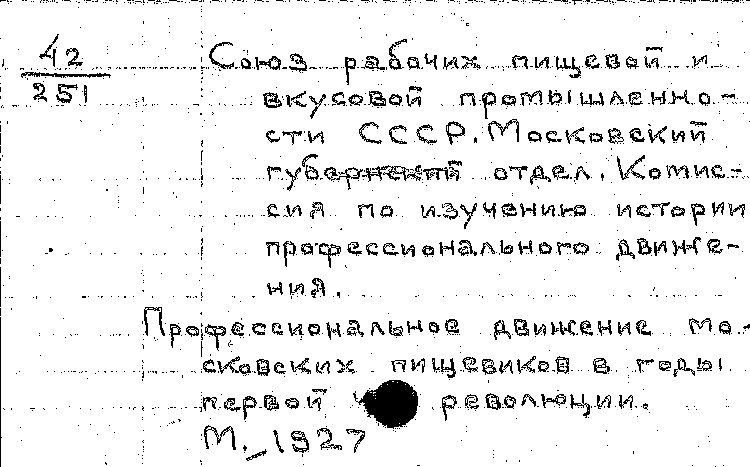 42
251
Союз рабочих пищевой и
вкусовой промышленно-
сти СССР. Московский
губернский отдел. Комис-
сия по изучению истории
профессионального движе-
ния.
Профессиональное движение мо-
сковских пищевиков в годы
первой революции.
М. 1927